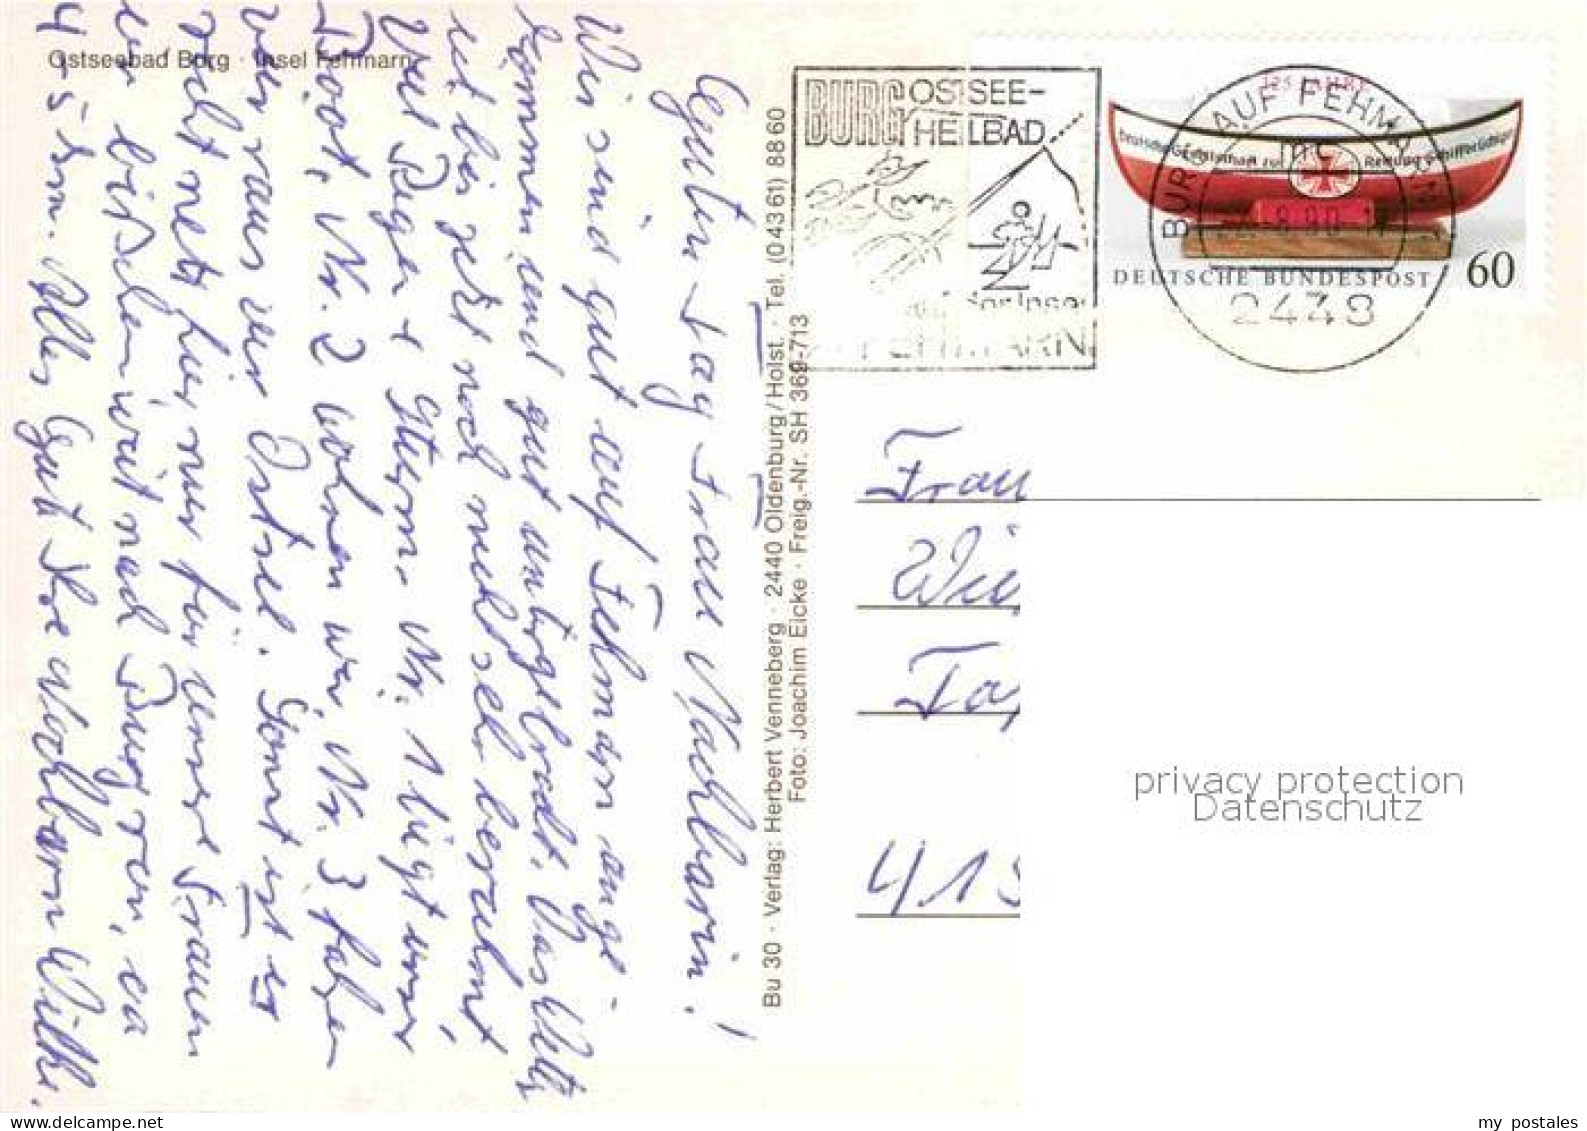 Ostseebad Burg · Insel Fehmarn
Guten Tag Frau Nachbarin!
Wir sind gut auf Fehmarn ange-
kommen und gut untergebracht. Das Wetter
ist bis jetzt noch nicht sehr berühmt
viel Regen + Sturm. Nr. 1 liegt unser
Boot, Nr. 2 wohnen wir, Nr. 3 fahren
wir raus zur Ostsee. Sonst ist es
recht nett hier nur für unsere Frauen
ein bißchen weit nach Burg rein, ca
4-5 km. Alles Gute Ihre Nachbarn Wilke.
Bu 30 · Verlag: Herbert Venneberg · 2440 Oldenburg/Holst. · Tel. (04361) 8860
Foto: Joachim Eicke · Freig.-Nr. SH 369-713
BURG OSTSEE-
HEILBAD
FEHMARN
125 JAHRE
Deutsche Gesellschaft zur Rettung Schiffbrüchiger
DEUTSCHE BUNDESPOST 60
BURG AUF FEHMARN
8.90
2448
Frau
415
privacy protection
Datenschutz
delcampe.net
my postales